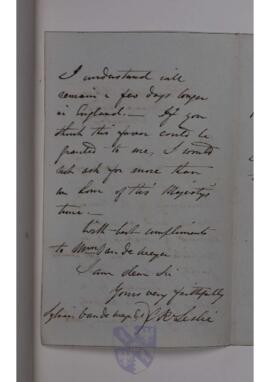 I understand will
remain a few days longer
in England. — If you
think this favor could be
granted to me, I would
not ask for more than
an hour of His Majesty's
time —
With best compliments
to Mme Van de Weyer
I am dear Sir
Yours very faithfully
Sylvain Van de Weyer Esq C R Leslie